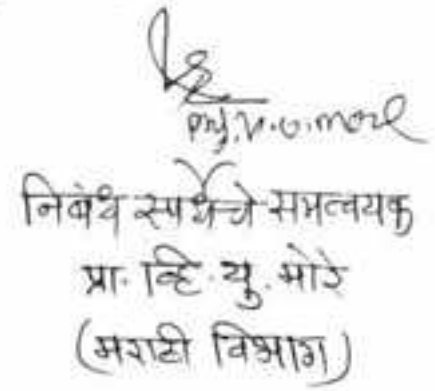 Prof. V. U. More
निबंध स्पर्धेचे समन्वयक
प्रा. व्हि. यु. मोरे
(मराठी विभाग)